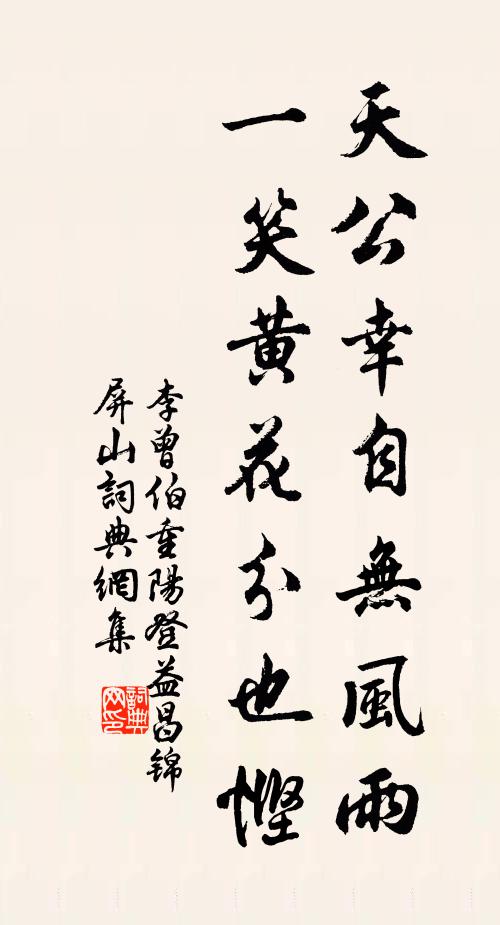 天公幸自無風雨
一笑黃花分也慳
李曾伯重陽登益昌錦
屏山詞典網集
詞典網印